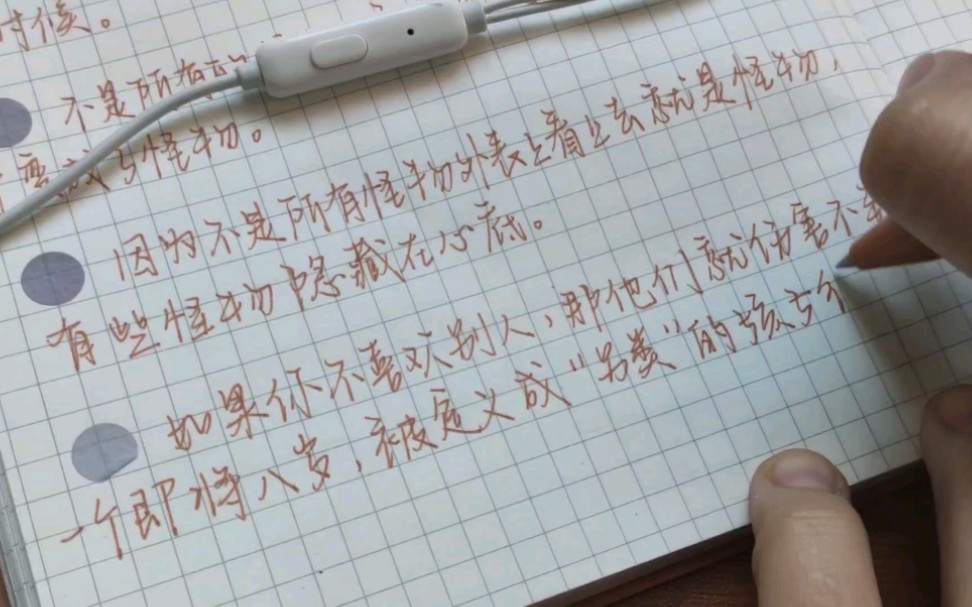 时候。
不是所有的
变成了怪物。
因为不是所有怪物外表上看上去就是怪物，
有些怪物隐藏在心底。
如果你不喜欢别人，那他们就伤害不
一个即将八岁，被定义成“另类”的孩子